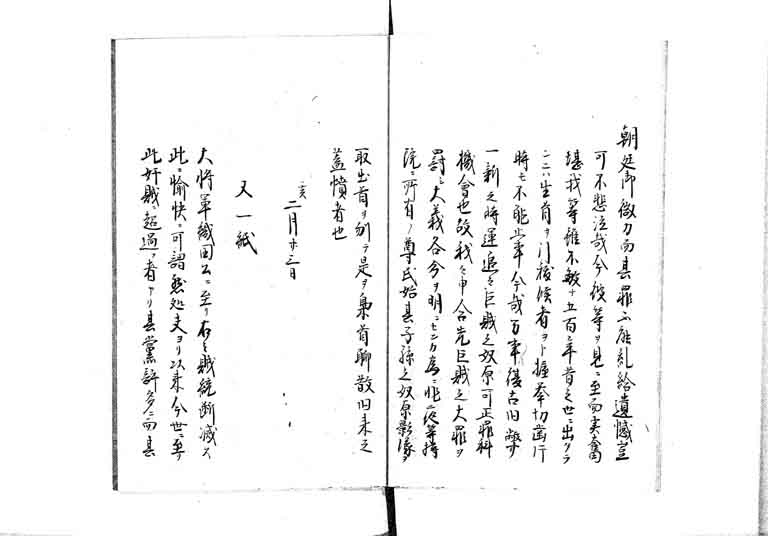 朝廷御微力而其罪不能糺給遺憾豈
可不悲泣哉今彼等ヲ見ニ至而実奮
堪我等雖不敏十五百年昔之世ニ出クラ
ニハ生首ヲ引抜候者ヲト握拳切歯片
時モ不能止事今哉万事復古旧弊ヲ
一新之時運追々巨賊之奴原可正罪科
機會也故我々申合先巨賊之大罪ヲ
罰シ大義名分ヲ明ニセンカ為ニ昨夜等持
院ニ所有ノ尊氏始其子孫之奴原影像ヲ
取出首ヲ刎テ是ヲ梟首聊散旧来之
蓋憤者也
亥二月廿三日
又一紙
大将軍織田公ニ至リ右之賊統断滅ス
此ニ愉快ト可謂然処夫ヨリ以来今世ニ至テ
此奸賊ニ超過ノ者アリ其黨許多ニ而其